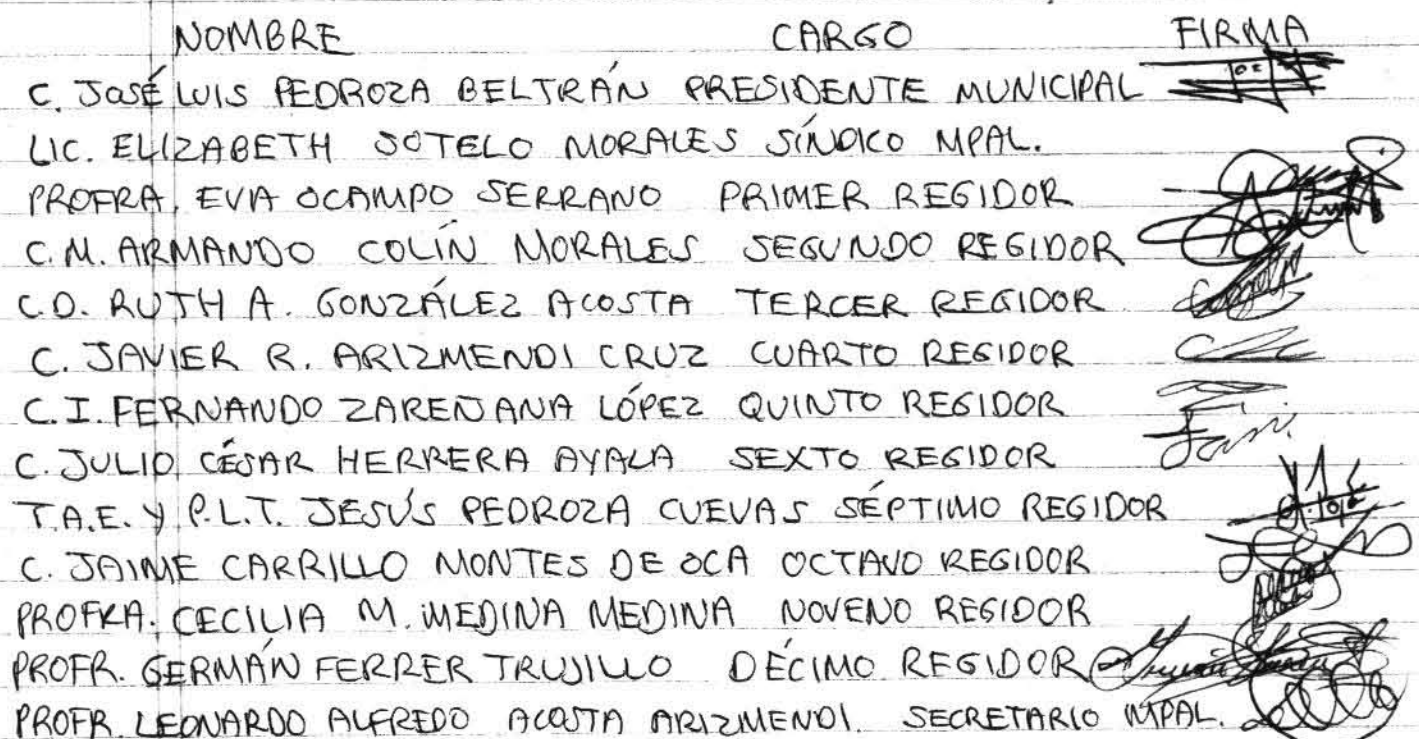 NOMBRE CARGO FIRMA
C. JOSÉ LUIS PEDROZA BELTRÁN PRESIDENTE MUNICIPAL
LIC. ELIZABETH SOTELO MORALES SÍNDICO MPAL.
PROFRA. EVA OCAMPO SERRANO PRIMER REGIDOR
C. M. ARMANDO COLÍN MORALES SEGUNDO REGIDOR
C.D. RUTH A. GONZÁLEZ ACOSTA TERCER REGIDOR
C. JAVIER R. ARIZMENDI CRUZ CUARTO REGIDOR
C. I. FERNANDO ZAREÑANA LÓPEZ QUINTO REGIDOR
C. JULIO CÉSAR HERRERA AYALA SEXTO REGIDOR
T.A.E. Y P.L.T. JESÚS PEDROZA CUEVAS SÉPTIMO REGIDOR
C. JAIME CARRILLO MONTES DE OCA OCTAVO REGIDOR
PROFRA. CECILIA M. MEDINA MEDINA NOVENO REGIDOR
PROFR. GERMÁN FERRER TRUJILLO DÉCIMO REGIDOR
PROFR. LEONARDO ALFREDO ACOSTA ARIZMENDI. SECRETARIO MPAL.